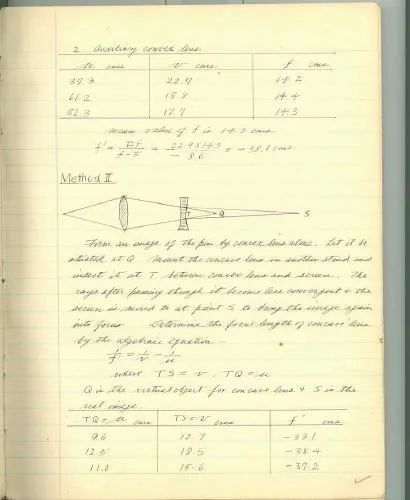 2 Auxiliary convex lens
u cms v cms f cms
37.3 22.7 14.2
61.2 18.8 14.4
72.3 17.7 14.3
mean value of f is 14.3 cms
f' = Ff / f-F = 22.9×14.3 / -8.6 = -38.1 cms
Method II
T Q S
Form an image of the pin by convex lens alone. Let it be
situated at Q Mount the concave lens in another stand and
insert it at T between convex lens and screen. The
rays after passing through it become less convergent & the
screen is moved to at point S to bring the image again
into focus Determine the focus length of concave lens
by the algebraic equation —
1/f = 1/v - 1/u
where TS = v, TQ = u
Q is the virtual object for concave lens & S is the
real image.
TQ = u cms TS = v cms f' cms
9.6 12.7 -39.1
12.5 18.5 -38.4
11.0 15.6 -37.2